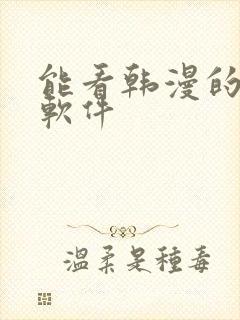 能看韩漫的
軟件
温柔是種毒